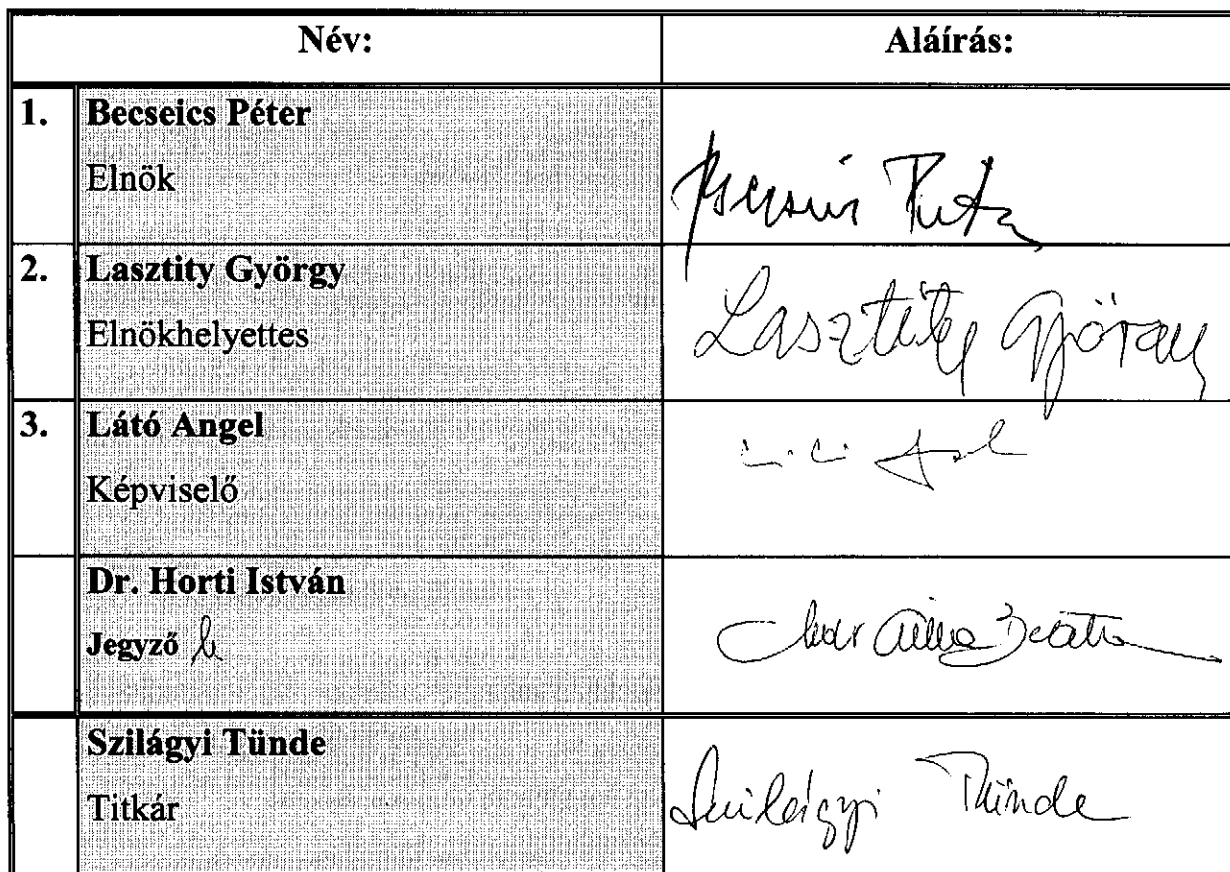 Név: Aláírás:
1. Becseics Péter
Elnök
2. Lasztity György
Elnökhelyettes
Lasztity György
3. Látó Angel
Képviselő
Dr. Horti István
Jegyző h
Szilágyi Tünde
Titkár
Szilágyi Tünde